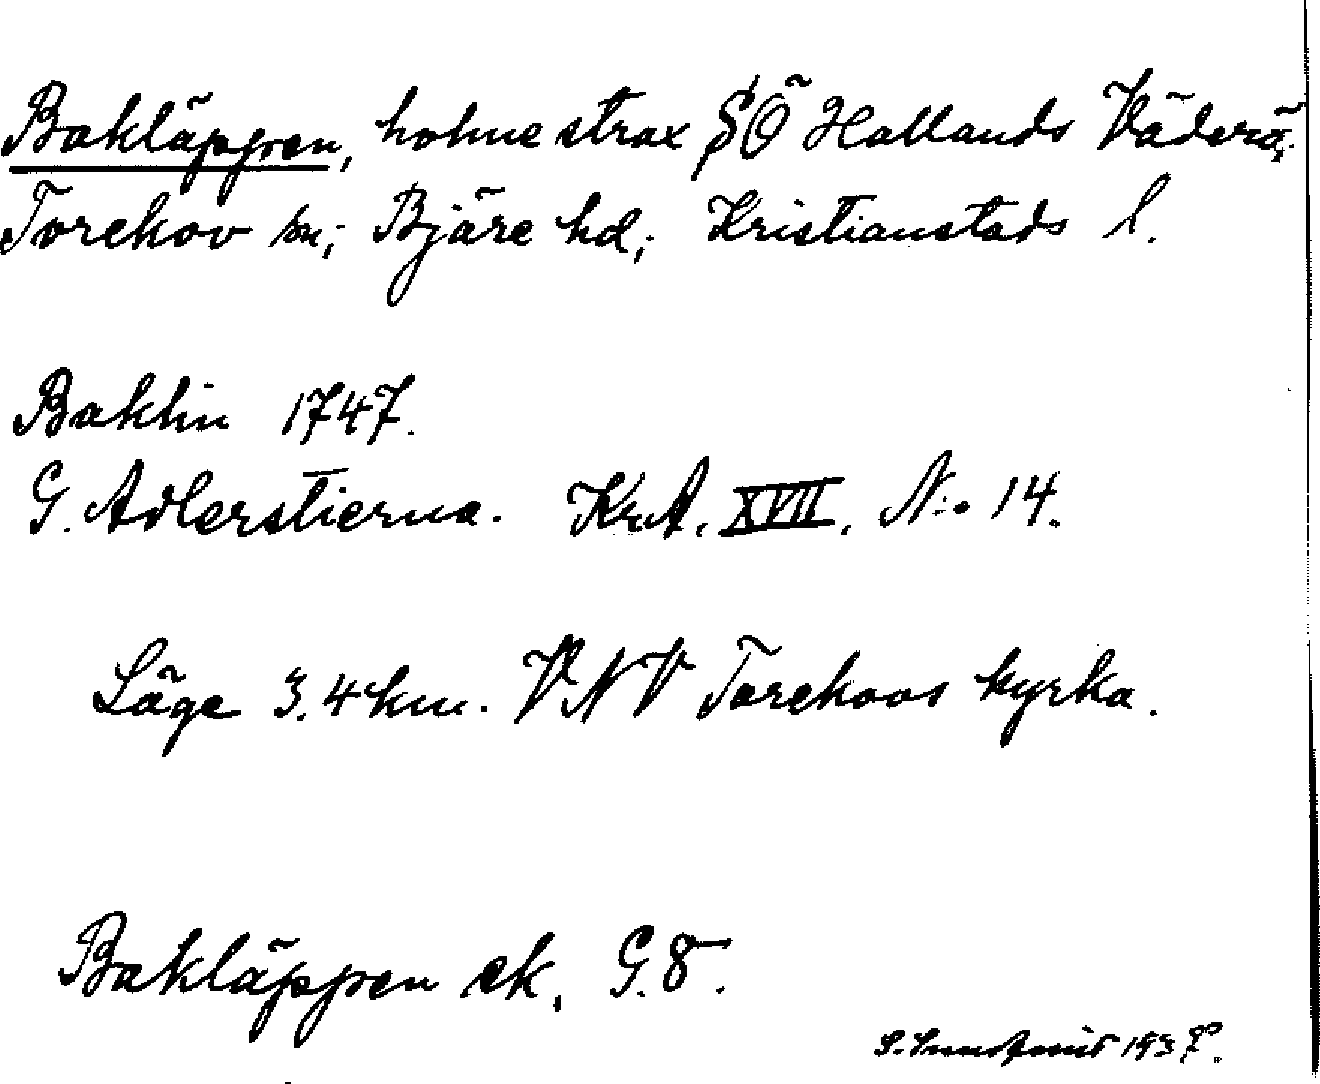 Bakläppen, holme strax SÖ Hallands Väderö;
Torekov sn; Bjäre hd; Kristianstads l.
Baklin 1747.
G. Adlerstierna. KrA. XVII. No 14.
Läge 3.4 km. VNV Torekovs kyrka.
Bakläppen ek. G. 8.
S. 1937.